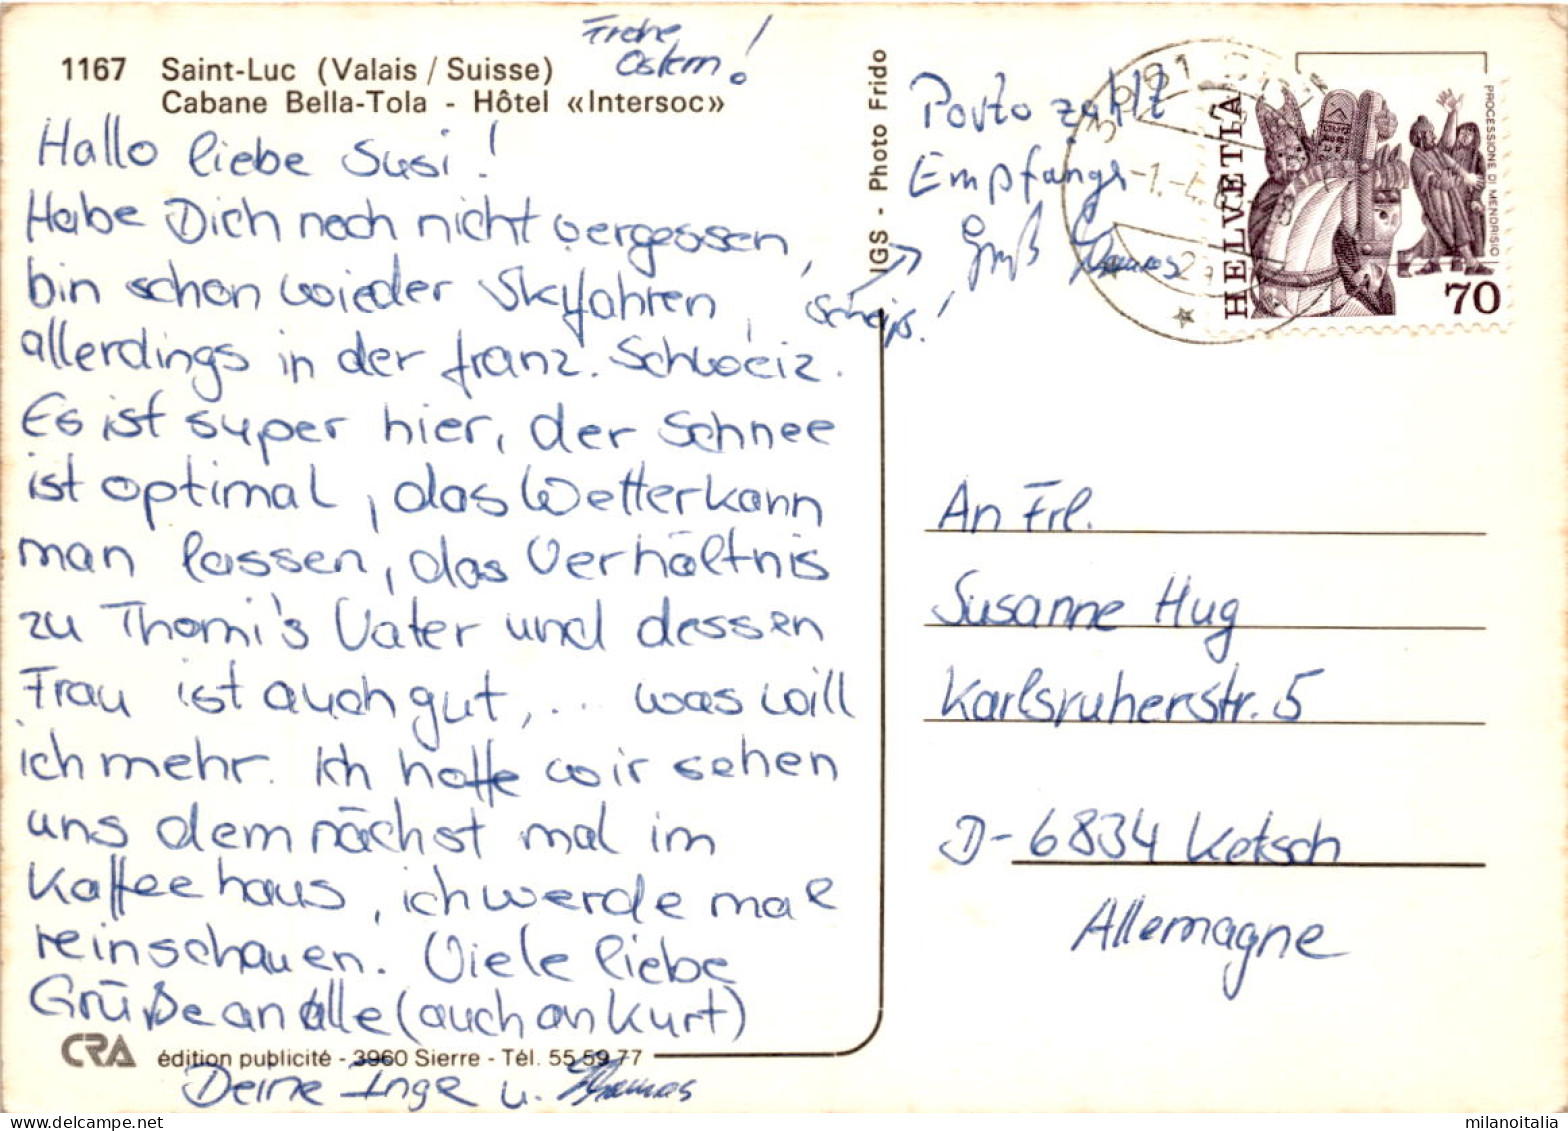 Frohe
Ostern!
1167 Saint-Luc (Valais / Suisse)
Cabane Bella-Tola - Hôtel «Intersoc»
Hallo liebe Susi!
Habe Dich noch nicht vergessen,
bin schon wieder Skifahren,
allerdings in der franz. Schweiz.
Es ist super hier, der Schnee
ist optimal, das Wetter kann
man lassen, das Verhältnis
zu Thomi's Vater und dessen
Frau ist auch gut, ... was will
ich mehr. Ich hoffe wir sehen
uns demnächst mal im
Kaffeehaus, ich werde mal
reinschauen. Viele liebe
Grüße an alle (auch an Kurt)
CRA édition publicité - 3960 Sierre - Tél. 55 59 77
Deine Inge u. Thomas
IGS - Photo Frido
Porto zahlt
Empfänger
Gruß Thomas
HELVETIA
PROCESSIONE DI MENDRISIO
70
An Frl.
Susanne Hug
Karlsruherstr. 5
D-6834 Ketsch
Allemagne
milanoitalia